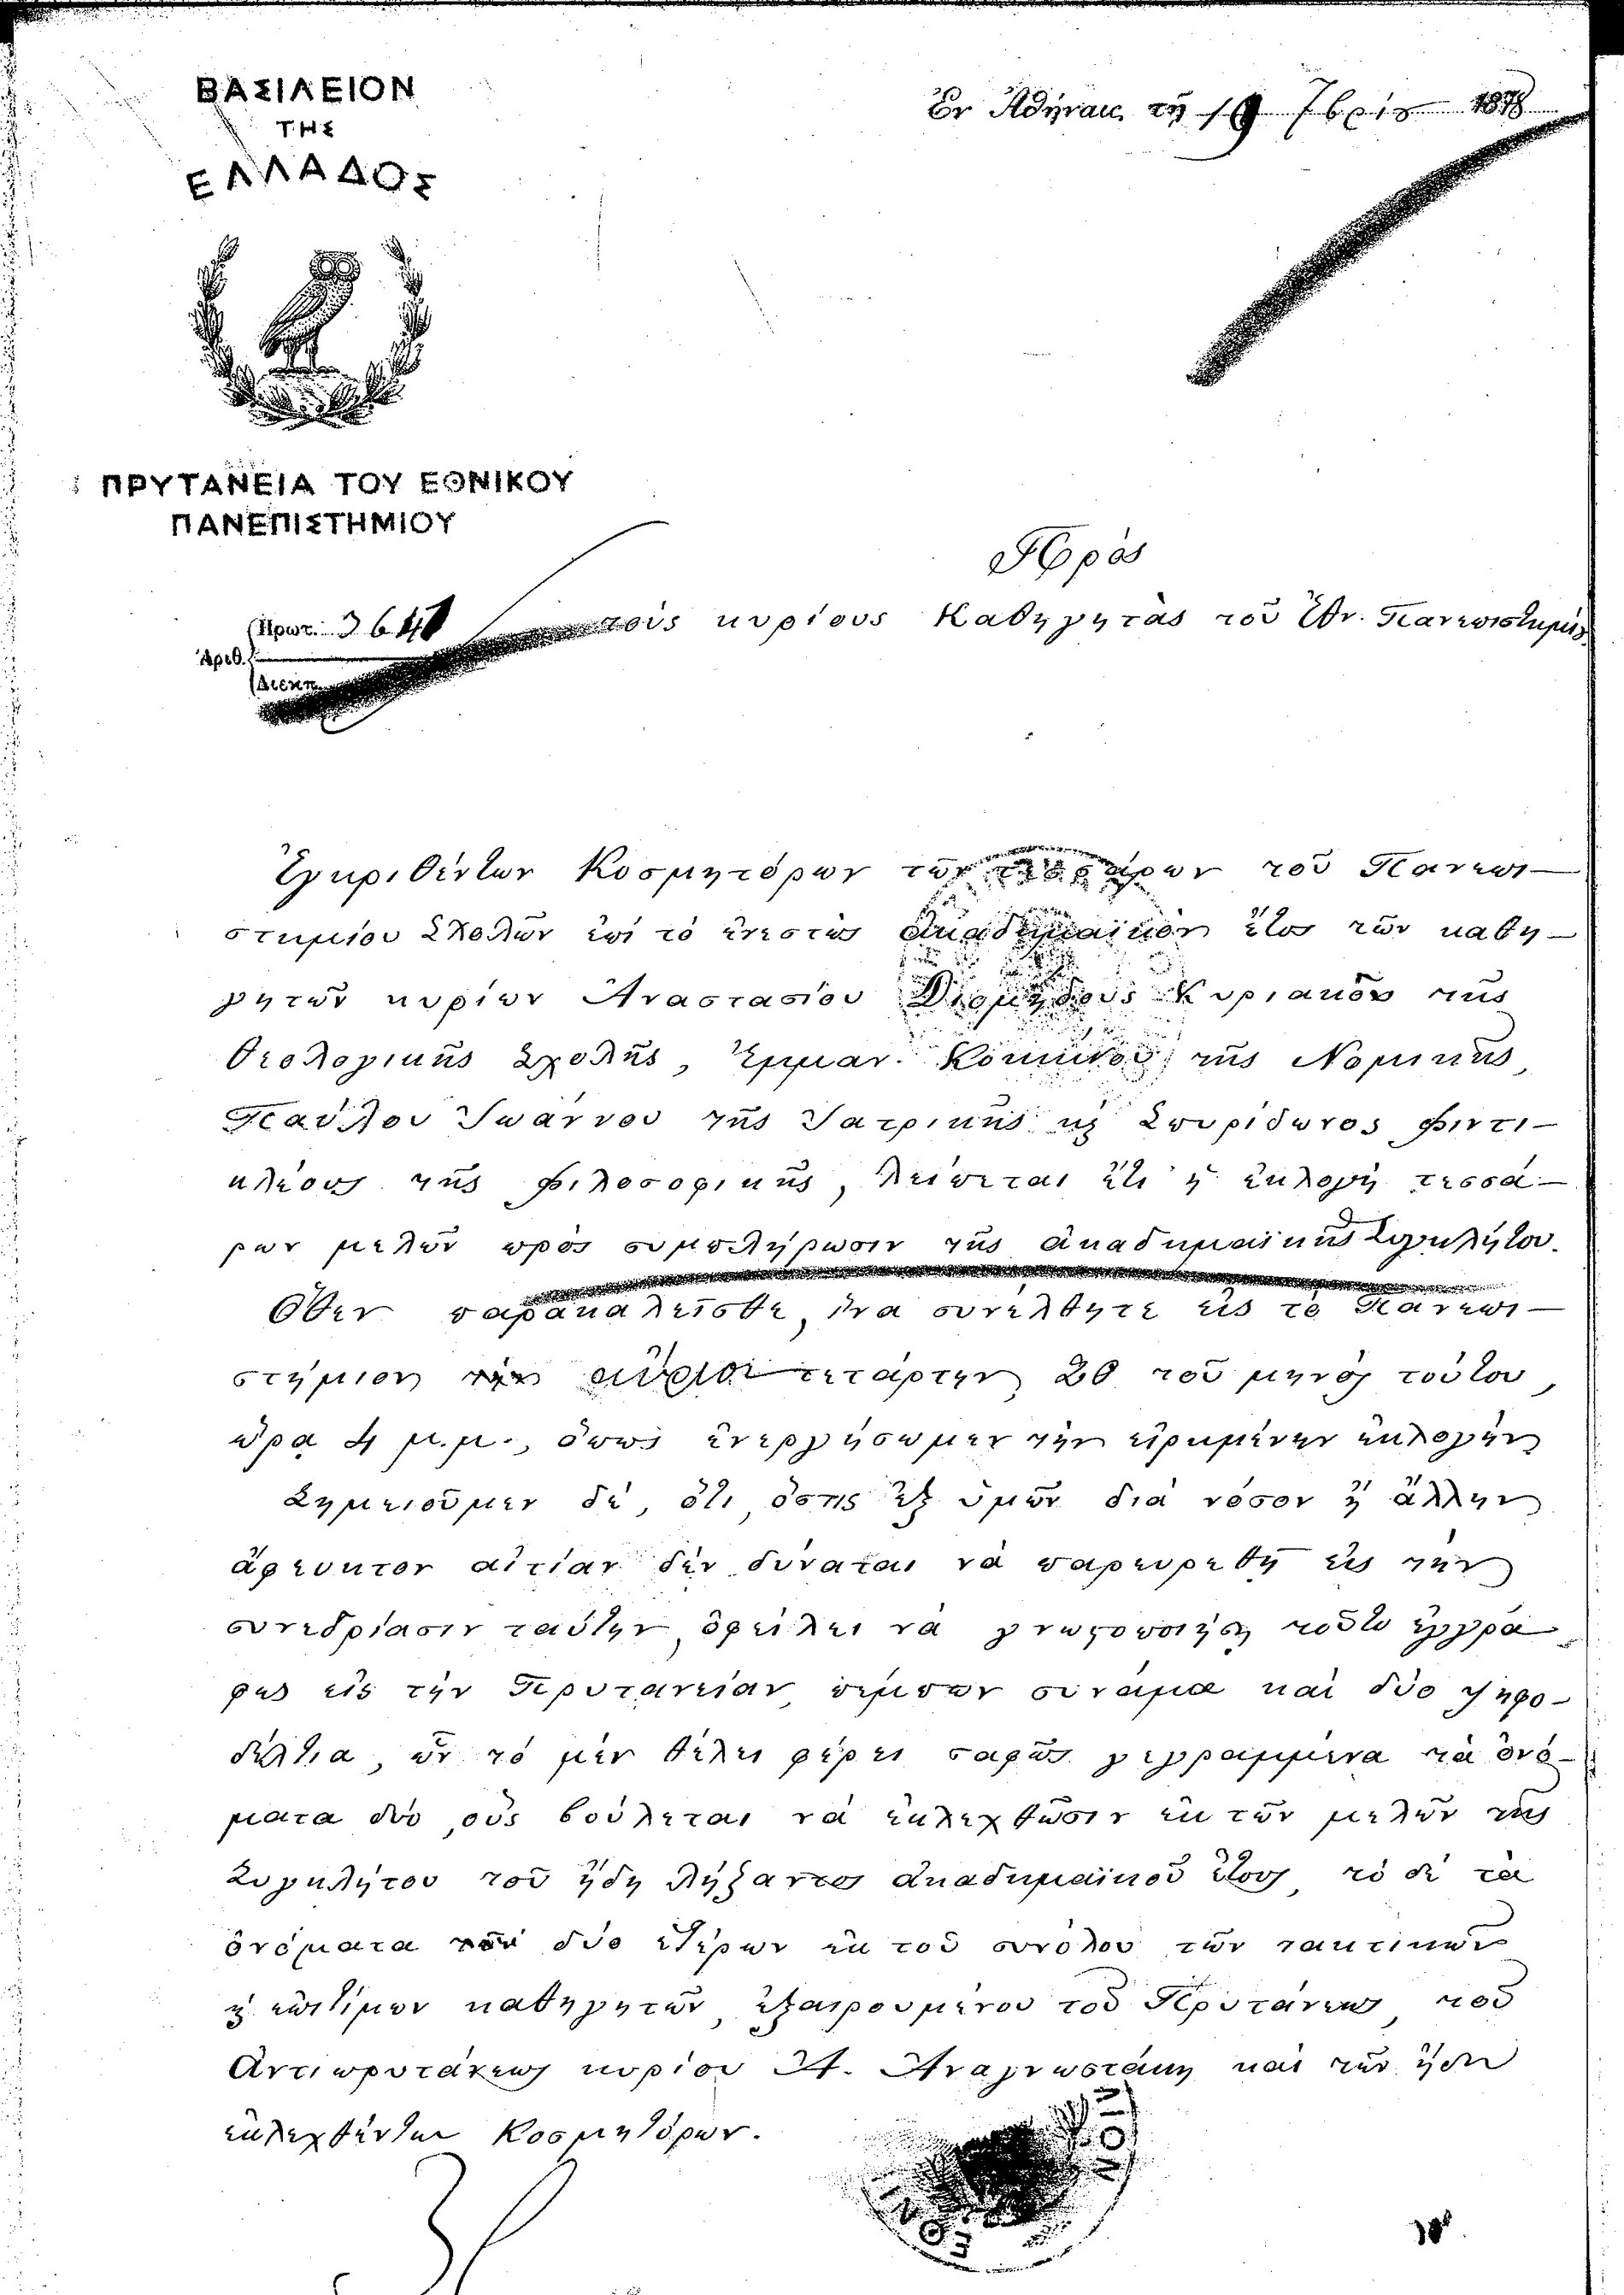 ΒΑΣΙΛΕΙΟΝ
ΤΗΣ
ΕΛΛΑΔΟΣ
Ἐν Ἀθήναις τῇ 19 7βρίου 1878
ΠΡΥΤΑΝΕΙΑ ΤΟΥ ΕΘΝΙΚΟΥ
ΠΑΝΕΠΙΣΤΗΜΙΟΥ
Πρὸς
Πρωτ. 3641
τοὺς κυρίους Καθηγητὰς τοῦ Ἐθν. Πανεπιστημίου
Ἀριθ.
Διεκπ.
Ἐγκριθέντων Κοσμητόρων τῶν τεσσάρων τοῦ Πανεπι-
στημίου Σχολῶν ἐπὶ τὸ ἐνεστὼς ἀκαδημαϊκὸν ἔτος τῶν καθη-
γητῶν κυρίων Ἀναστασίου Διομήδους Κυριακοῦ τῆς
Θεολογικῆς Σχολῆς, Ἐμμαν. Κόκκινου τῆς Νομικῆς,
Παύλου Ἰωάννου τῆς Ἰατρικῆς κ Σπυρίδωνος Φιντι-
κλέους τῆς Φιλοσοφικῆς, λείπεται ἔτι ἡ ἐκλογὴ τεσσά-
ρων μελῶν πρὸς συμπλήρωσιν τῆς ἀκαδημαϊκῆς Συγκλήτου.
Ὅθεν παρακαλεῖσθε, ἵνα συνέλθητε εἰς τὸ Πανεπι-
στήμιον τὴν αὔριον τετάρτην 20 τοῦ μηνὸς τούτου,
ὥρα 4 μ.μ., ὅπως ἐνεργήσωμεν τὴν εἰρημένην ἐκλογὴν
Σημειοῦμεν δέ, ὅτι ὅστις ἐξ ὑμῶν διὰ νόσον ἢ ἄλλην
ἄφευκτον αἰτίαν δὲν δύναται νὰ παρευρεθῇ εἰς τὴν
συνεδρίασιν ταύτην, ὀφείλει νὰ γνωστοποιήσῃ τοῦτο ἐγγρά-
φως εἰς τὴν Πρυτανείαν πέμπων συνάμα καὶ δύο ψηφο-
δέλτια, ὧν τὸ μὲν θέλει φέρει σαφῶς γεγραμμένα τὰ ὀνό-
ματα δύο, οὓς βούλεται νὰ ἐκλεχθῶσιν ἐκ τῶν μελῶν τῆς
Συγκλήτου τοῦ ἤδη λήξαντος ἀκαδημαϊκοῦ ἔτους, τὸ δὲ τὰ
ὀνόματα τῶν δύο ἑτέρων ἐκ τοῦ συνόλου τῶν τακτικῶν
ἢ ἐπιτίμων καθηγητῶν, ἐξαιρουμένου τοῦ Πρυτάνεως, τοῦ
Ἀντιπρυτάνεως κυρίου Α. Ἀναγνωστάκη καὶ τῶν ἤδη
ἐκλεχθέντων Κοσμητόρων.